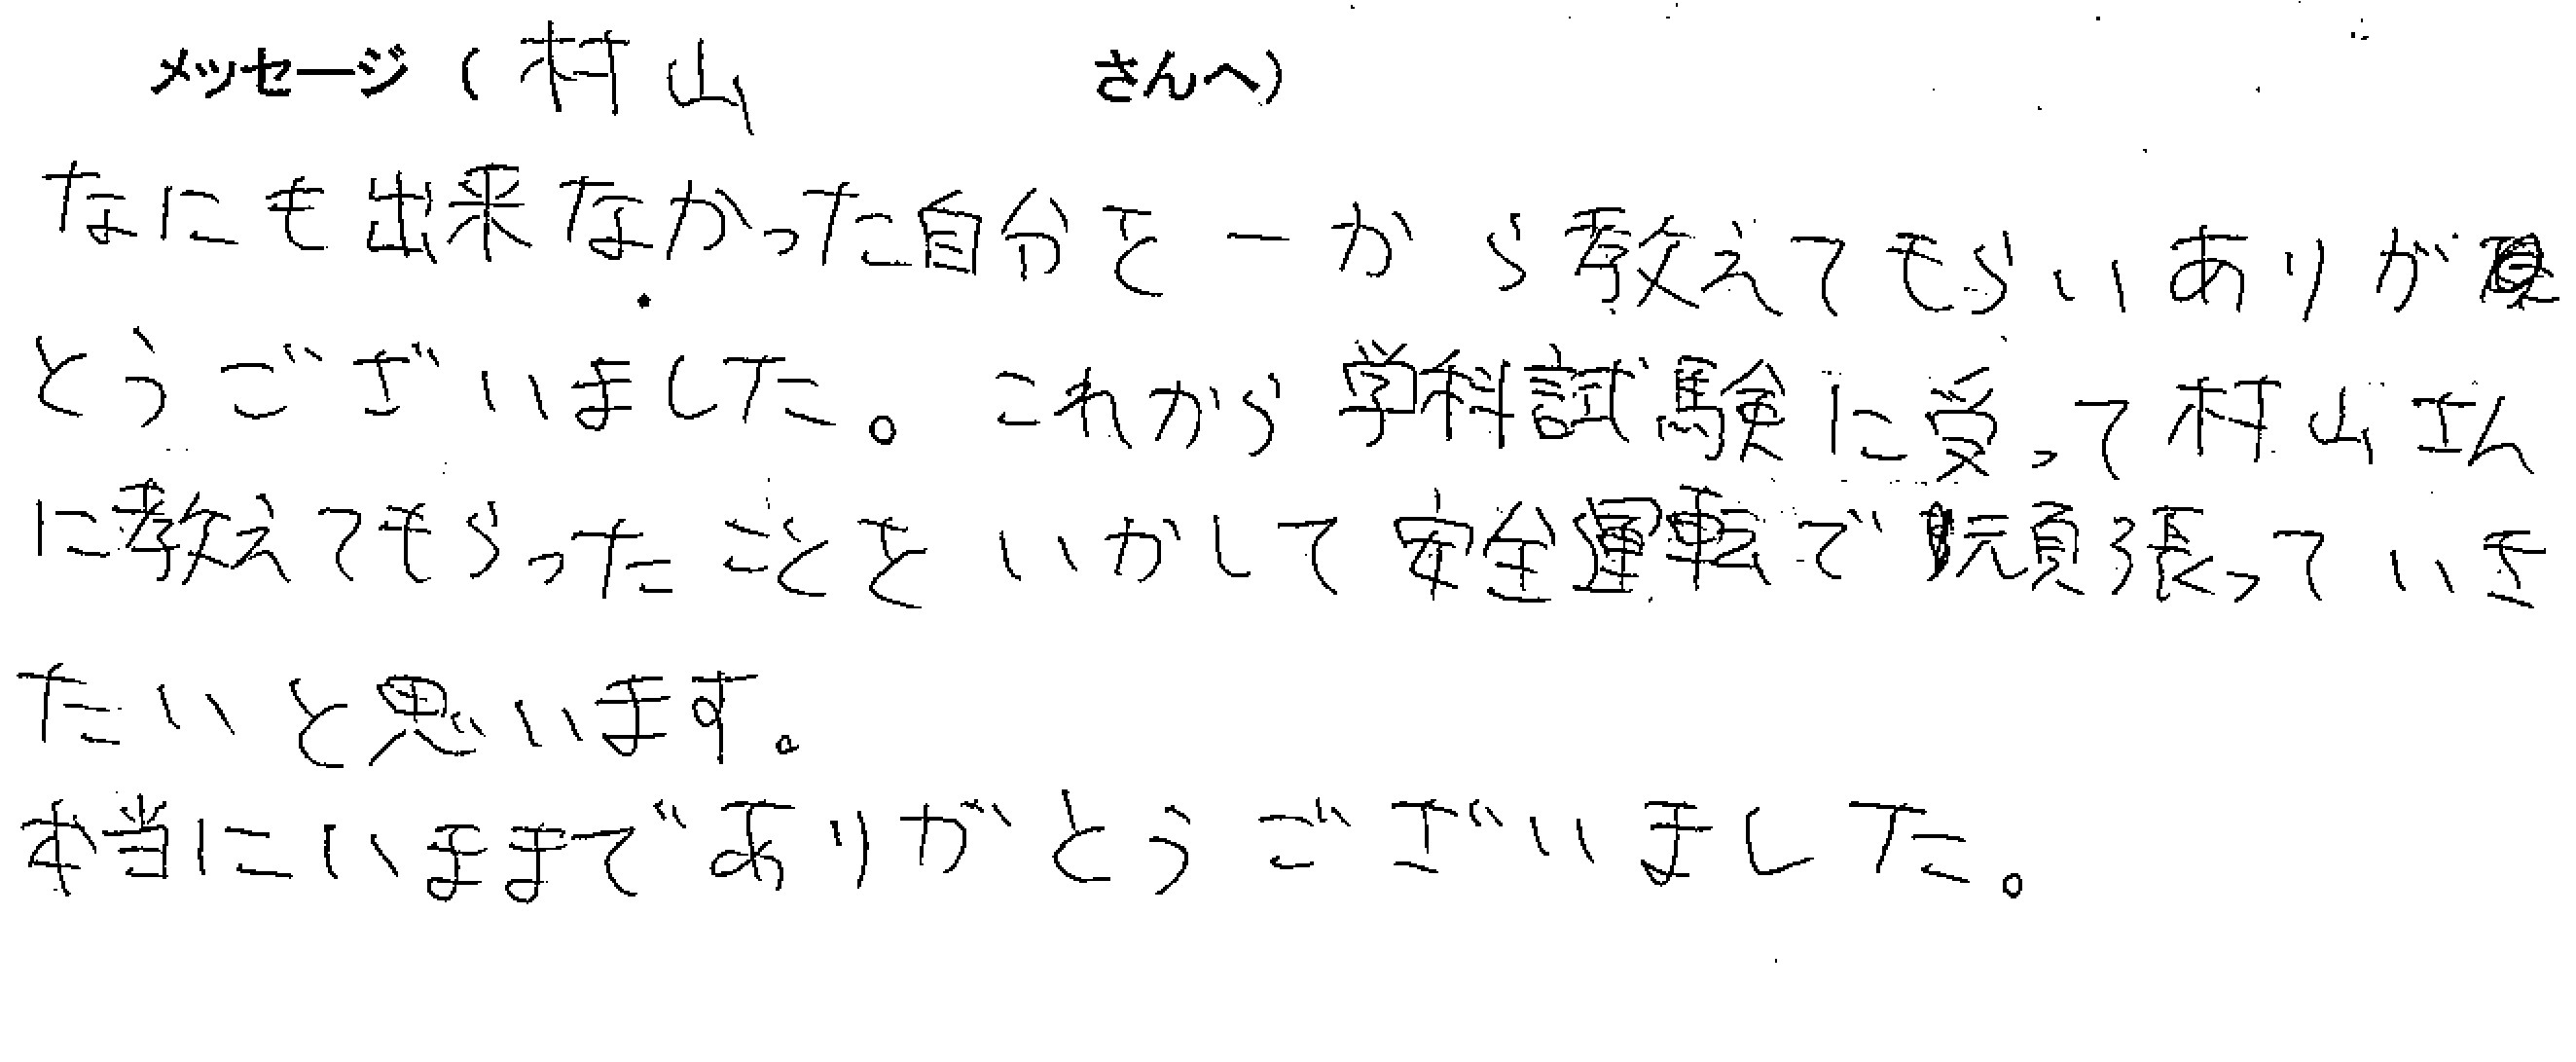 メッセージ（村山 さんへ）
なにも出来なかった自分を一から教えてもらいありが
とうございました。これから学科試験に受って村山さん
に教えてもらったことをいかして安全運転で頑張っていき
たいと思います。
本当にいままでありがとうございました。